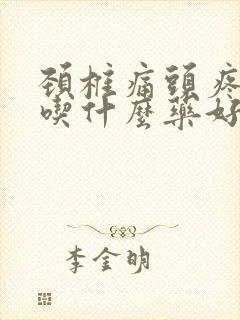 頚椎痛頭疼
喫什麼藥好
李金明